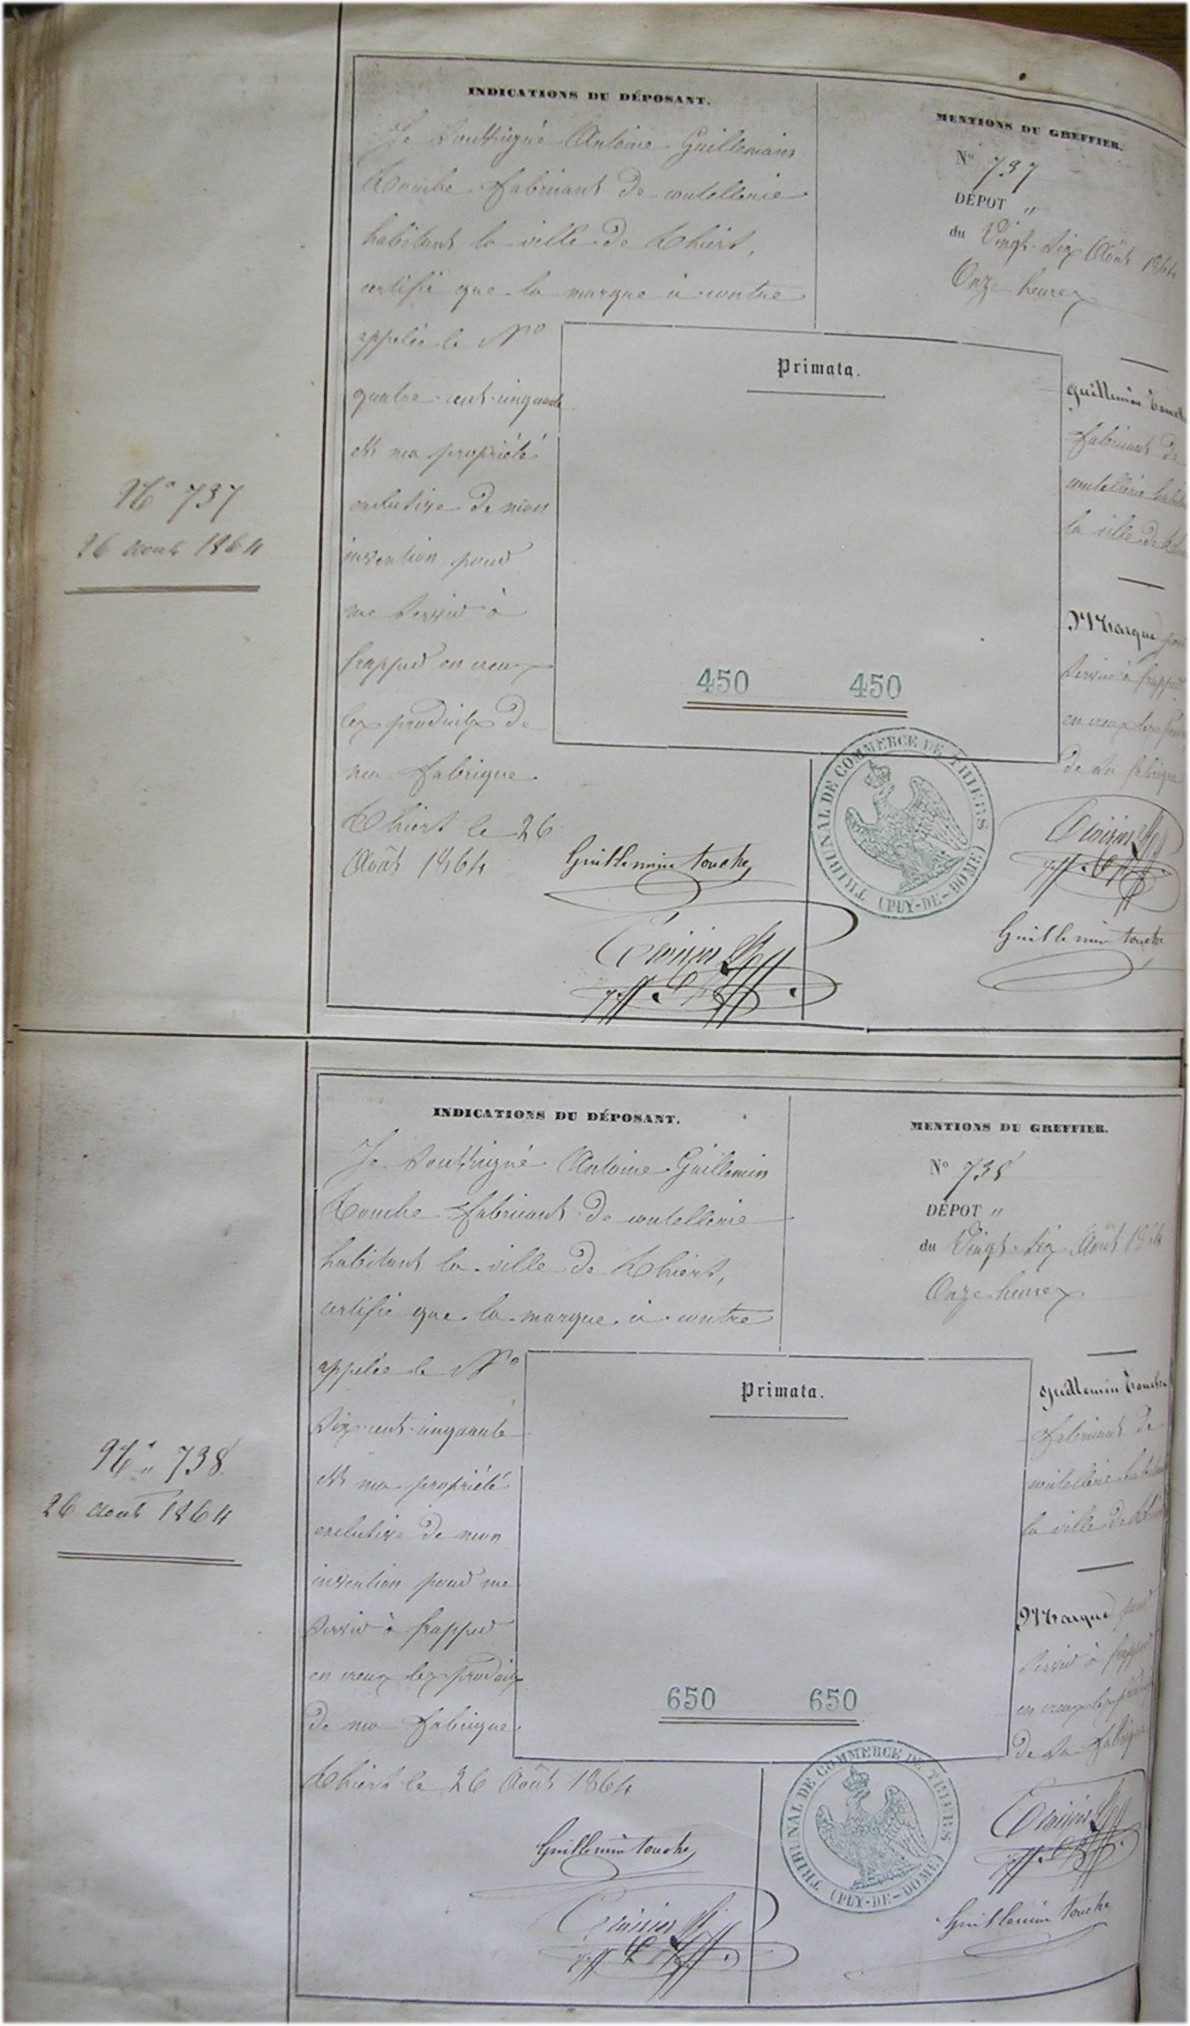 N° 737
26 août 1864
INDICATIONS DU DÉPOSANT.
Je soussigné Antoine Guillemin
Touche fabricant de coutellerie
habitant la ville de Thiers,
certifie que la marque ci-contre
appelée le N°
quatre cent cinquante
est ma propriété
exclusive de mon
invention pour
me servir à
frapper en creux
les produits de
ma fabrique.
Thiers le 26
Août 1864
Primata.
450 450
Guillemin touche
MENTIONS DU GREFFIER.
N° 737
DÉPOT "
du Vingt-six Août 1864
Onze heures
Guillemin Touche
fabricant de
coutellerie
la ville de
Marque pour
servir à frapper
en creux les
de sa fabrique
TRIBUNAL DE COMMERCE DE THIERS
(PUY-DE-DOME)
Guillemin touche
N° 738
26 août 1864
INDICATIONS DU DÉPOSANT.
Je soussigné Antoine Guillemin
Touche fabricant de coutellerie
habitant la ville de Thiers,
certifie que la marque ci-contre
appelée le N°
six cent cinquante
est ma propriété
exclusive de mon
invention pour me
servir à frapper
en creux les produits
de ma fabrique.
Thiers le 26 Août 1864
Primata.
650 650
Guillemin touche
MENTIONS DU GREFFIER.
N° 738
DÉPOT "
du Vingt-six Août 1864
Onze heures
Guillemin Touche
fabricant de
coutellerie
la ville de
Marque pour
servir à frapper
en creux les
de sa fabrique
TRIBUNAL DE COMMERCE DE THIERS
(PUY-DE-DOME)
Guillemin touche